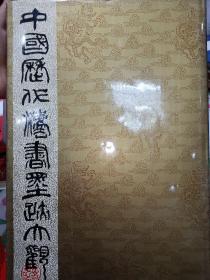 中國歷代法書墨跡大觀